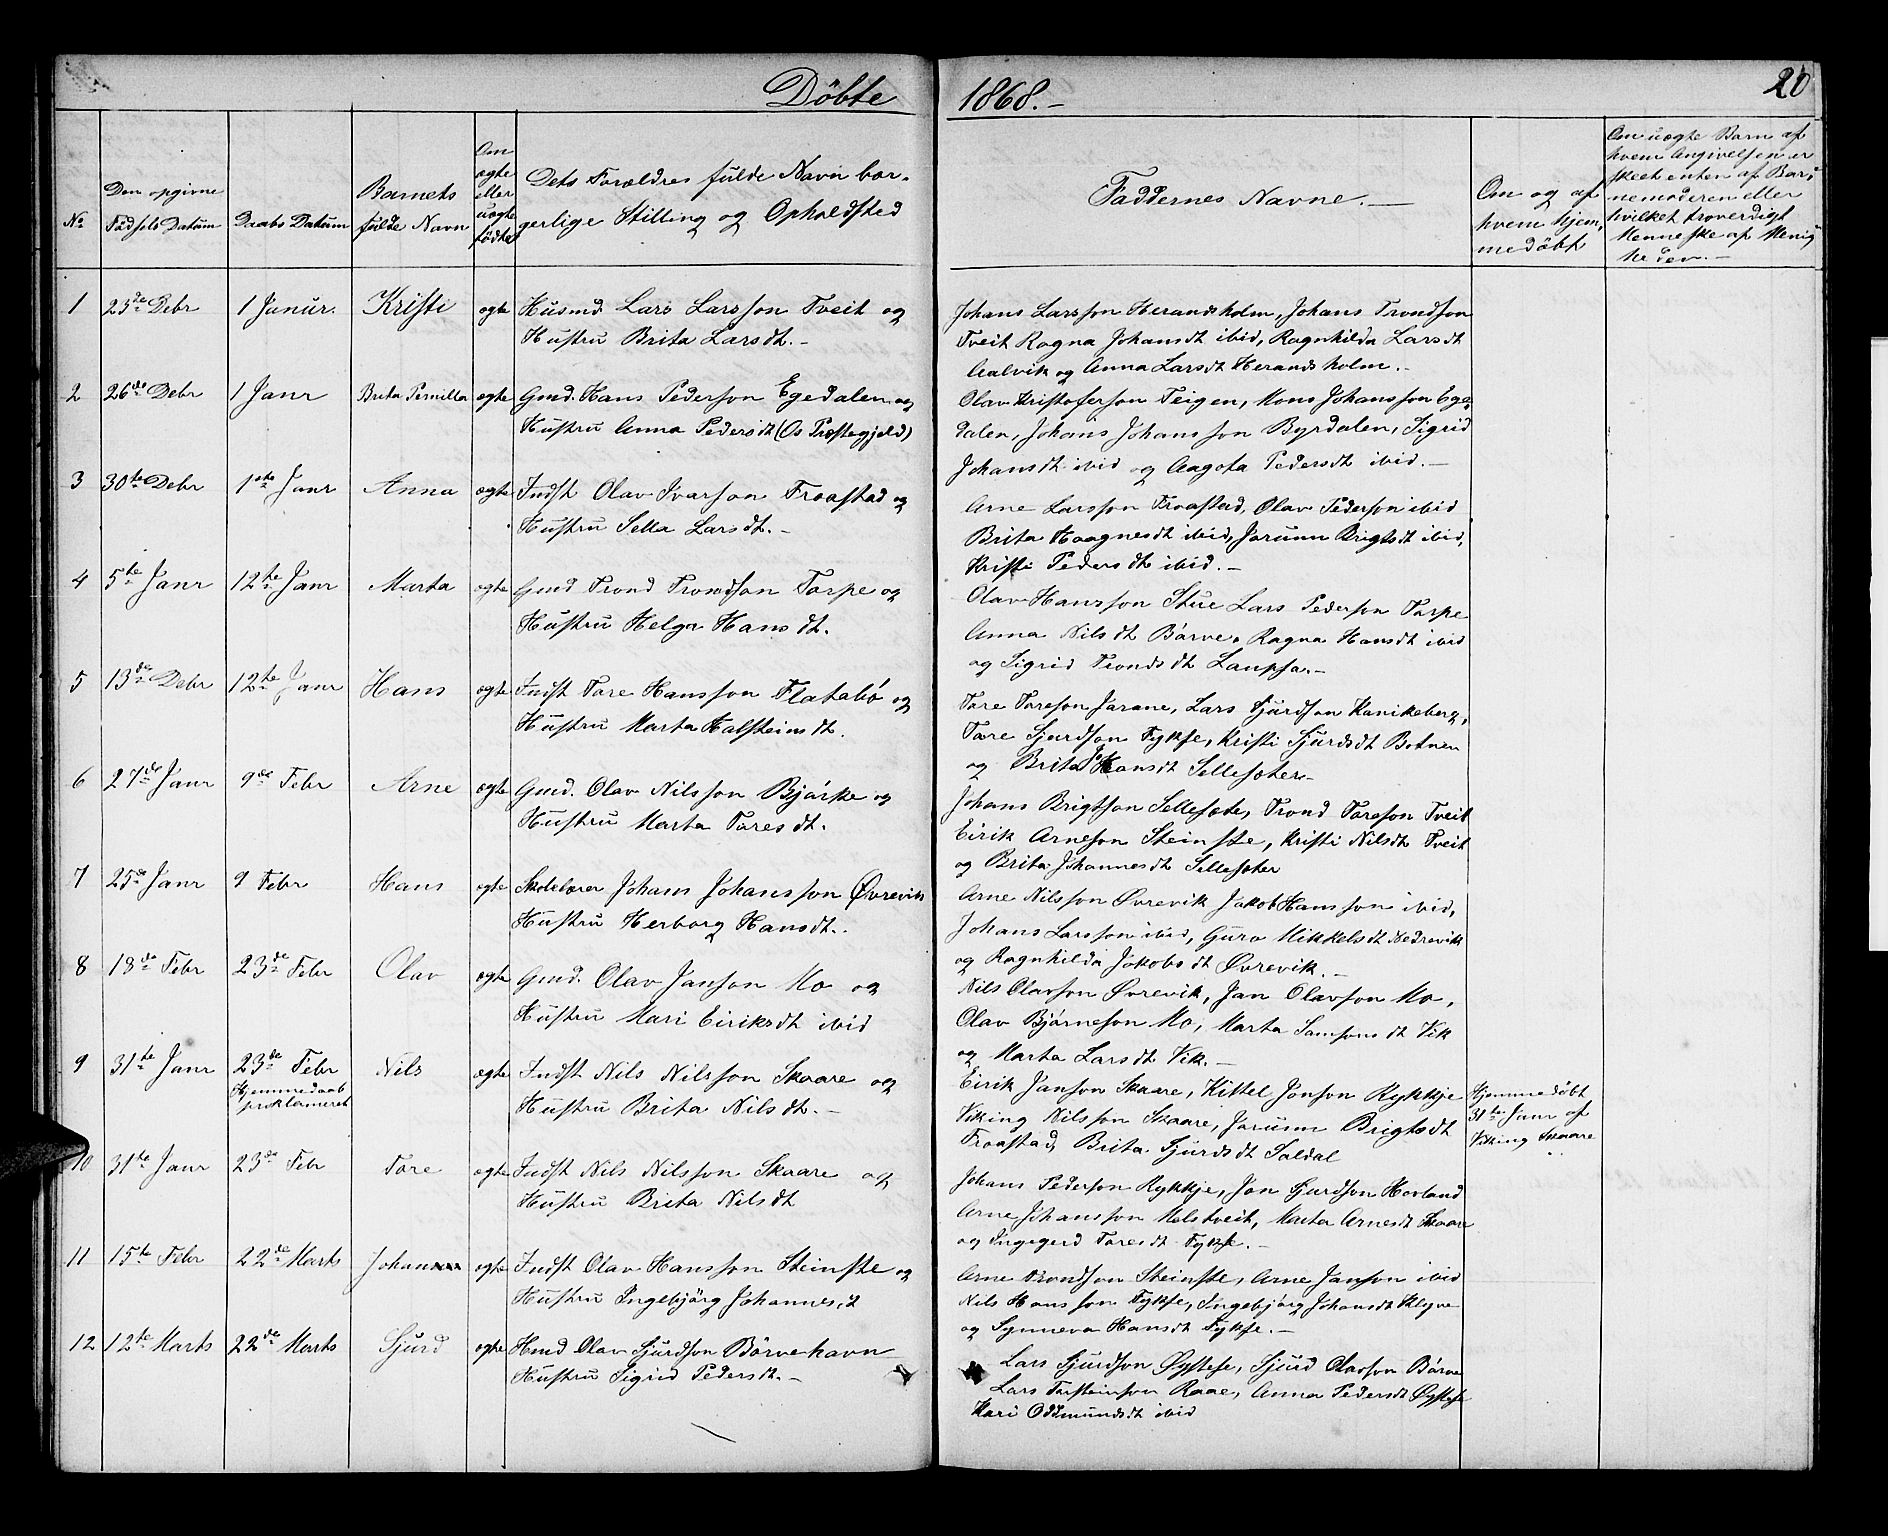 Döbte 1868.-
20
No
Den opgivne
Födsels Datum
Daabs Datum
Barnets
fulde Navn
Om
ægte
eller
uægte
födte
Dets Forældres fulde Navn bor-
gerlige Stilling og Opholdsted
Faddernes Navne.-
Om og af
hvem hjem-
medöbt
Om uægte Barn af
hvem Angivelsen er
skeet enten af Bar-
nemoderen eller
hvilket troverdigt
Menneske af Menig-
heden.-
1 23de Debr 1 Janur. Kristi ægte Husmd Lars Larsson Tveit og
Hustru Brita Larsdt.-
Johans Larsson Herandsholm, Johans Trondson
Tveit Ragna Johansdt ibid, Ragnhilda Larsdt
Aalvik og Anna Larsdt Herandsholm.-
2 26de Debr 1 Janr Brita Pernilla ægte Gmd. Hans Pederson Egedalen og
Hustru Anna Pedersdt (Os Præstegjeld)
Olav Kristoferson Teigen, Mons Johansson Ege-
dalen, Johans Johansson Byrdalen, Sigrid
Johansdt ibid og Aagota Pedersdt ibid.-
3 30te Debr 1ste Janr Anna ægte Indst Olav Ivarson Froastad og
Hustru Sella Larsdt.-
Arne Larsson Froastad, Olav Pederson ibid
Brita Haagnesdt ibid, Jorunn Brigtsdt ibid,
Kristi Pedersdt ibid.-
4 5te Janr 12te Janr Marta ægte Gmd Trond Trondson Torpe og
Hustru Helga Hansdt.
Olav Hansson Stue Lars Pederson Torpe
Anna Nilsdt Börve, Ragna Hansdt ibid
og Sigrid Trondsdt Laupsa.-
5 13de Debr 12te Janr Hans ægte Indst Tore Hansson Flatabö og
Hustru Marta Halsteinsdt.
Tore Toreson Jarane, Lars Sjurdson Kanikeberg,
Tore Sjurdson Fykse, Kristi Sjurdsdt Botnen
og Brita Johansdt Sellesæter.-
6 27de Janr 9de Febr Arne ægte Gmd. Olav Nilsson Bjórke og
Hustru Marta Toresdt.
Johans Brigtson Sellesæte, Trond Toreson Tveit
Eirik Arneson Steinste, Kristi Nilsdt Tveit
og Brita Johannesdt Sellesæter
7 25de Janr 9 Febr Hans ægte Skolelærer Johans Johansson Øvrevik
Hustru Herborg Hansdt..
Arne Nilsson Øvrevik Jakob Hansson ibid,
Johans Larsson ibid, Guro Mikkelsdt Nedrevik
og Ragnhilda Jakobsdt Øvrevik.-
8 18de Febr 23de Febr Olav ægte Gmd. Olav Janson Mo og
Hustru Mari Eiriksdt ibid
Nils Olavson Øvrevik, Jan Olavson Mo,
Olav Bjórneson Mo, Marta Samsonsdt Vik
og Marta Larsdt Vik.-
9 31te Janr 23de Febr Nils ægte Indst Nils Nilsson Skaare og
Hjemmedaab
proklameret
Hustru Brita Nilsdt.-
Eirik Janson Skaare, Kittel Jonson Rykkje
Viking Nilsson Skaare, Jorunn Brigtsdt
Froastad, Brita Sjurdsdt Soldal
Hjemmedöbt
31te Janr af
Viking Skaare
10 31te Janr 23de Febr Tore ægte Indst Nils Nilsson Skaare og
Hustru Brita Nilsdt
Johans Pederson Rykkje, Jon Sjurdson Hovland
Arne Johansson Molstveit, Marta Arnesdt Skaare
og Ingegerd Toresdt Fykse.-
11 15te Febr 22de Marts Johannes ægte Indst Olav Hansson Steinste og
Hustru Ingebjörg Johannesdt
Arne Trondson Steinste, Arne Janson ibid
Nils Hansson Fykse, Ingebjórg Johansdt Klyve
og Synneva Hansdt Fykse.-
12 12te Marts 22de Marts Sjurd ægte Hmd Olav Sjurdson Börvehavn
Hustru Sigrid Pedersdt.-
Lars Sjurdson Øystese, Sjurd Olavson Börve
Lars Torsteinson Raae, Anna Pedersdt Øystese
Kari Oddmundsdt ibid